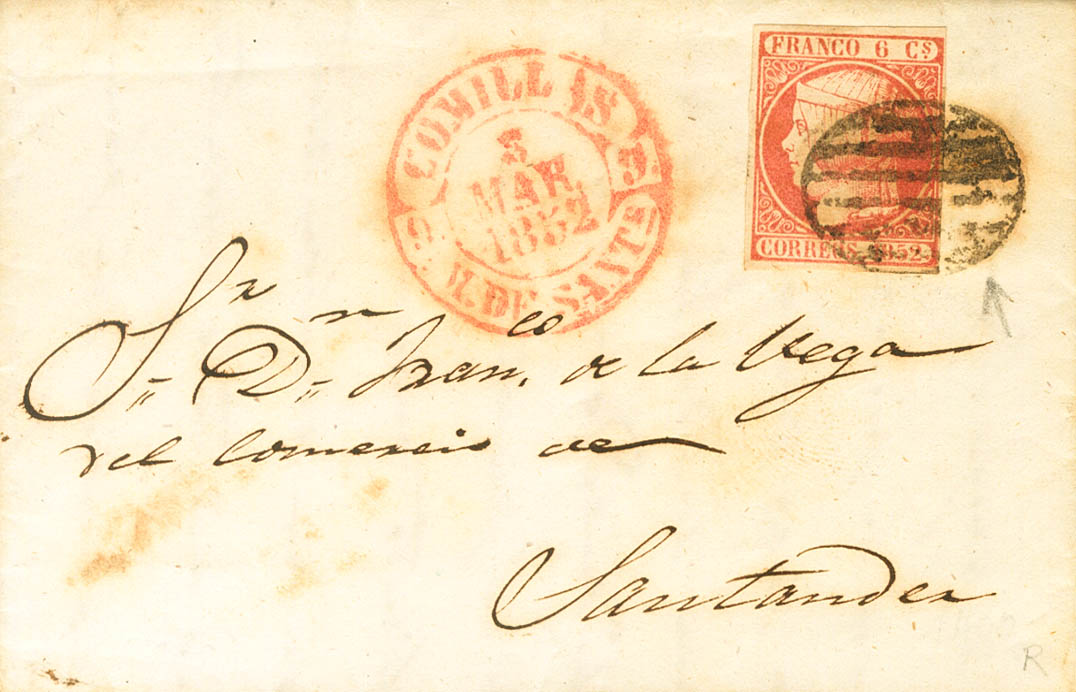 FRANCO 6 CS
CORREOS 1852
COMILLAS
3
MAR
1852
M. DE SANTR
Sr. Dn. Franco. de la Vega
del Comercio de
Santander
R